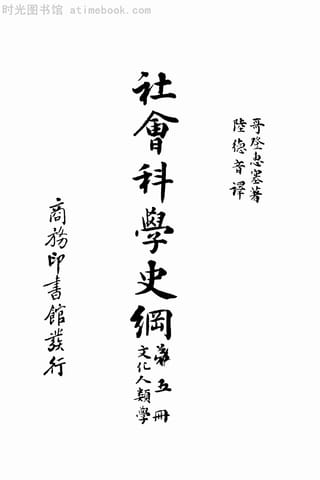 时光图书馆 atimebook.com
哥登惠塞著
陸德音譯
社會科學史綱
第五冊
文化人類學
商務印書館發行